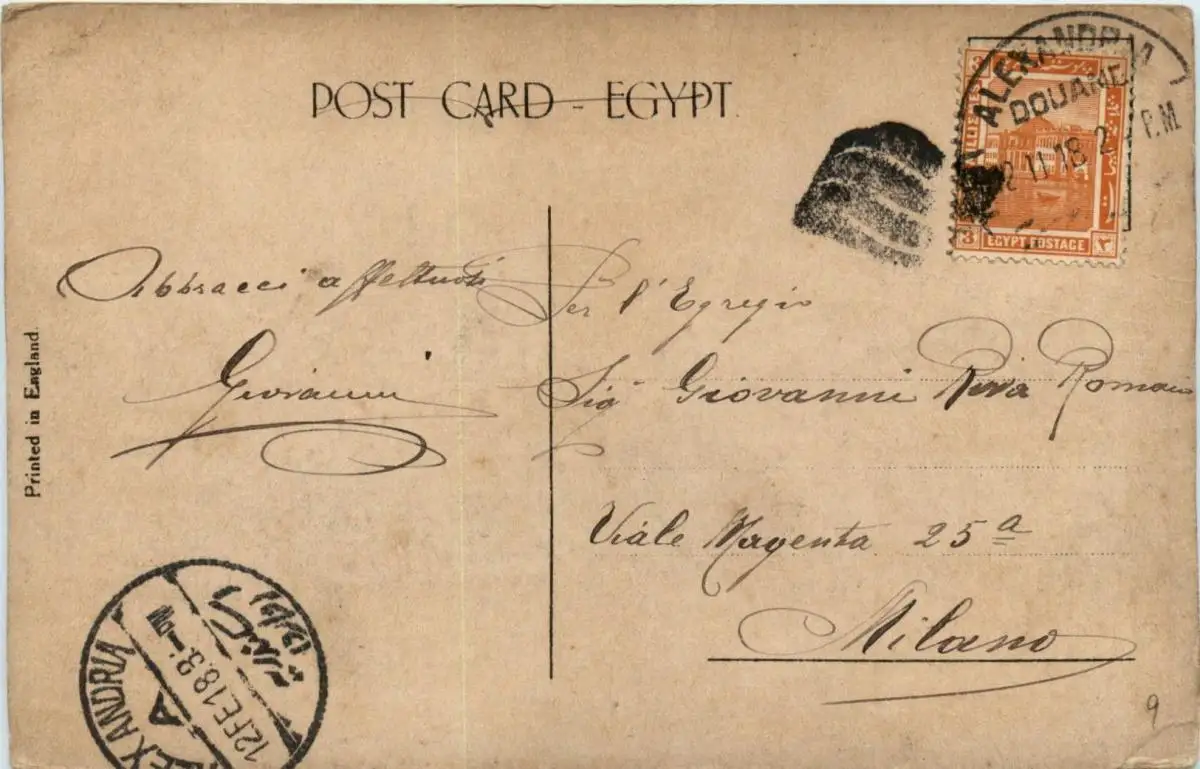 POST CARD - EGYPT
ALEXANDRIA
DOUANE
2 II 18 2 P.M.
3
EGYPT POSTAGE
٣
Abbracci affettuosi
Giovanni
Per l'Egregio
Sig Giovanni Riva Romano
Viale Magenta 25ª
Milano
Printed in England
ALEXANDRIA
A
12.FE.18.3-
9